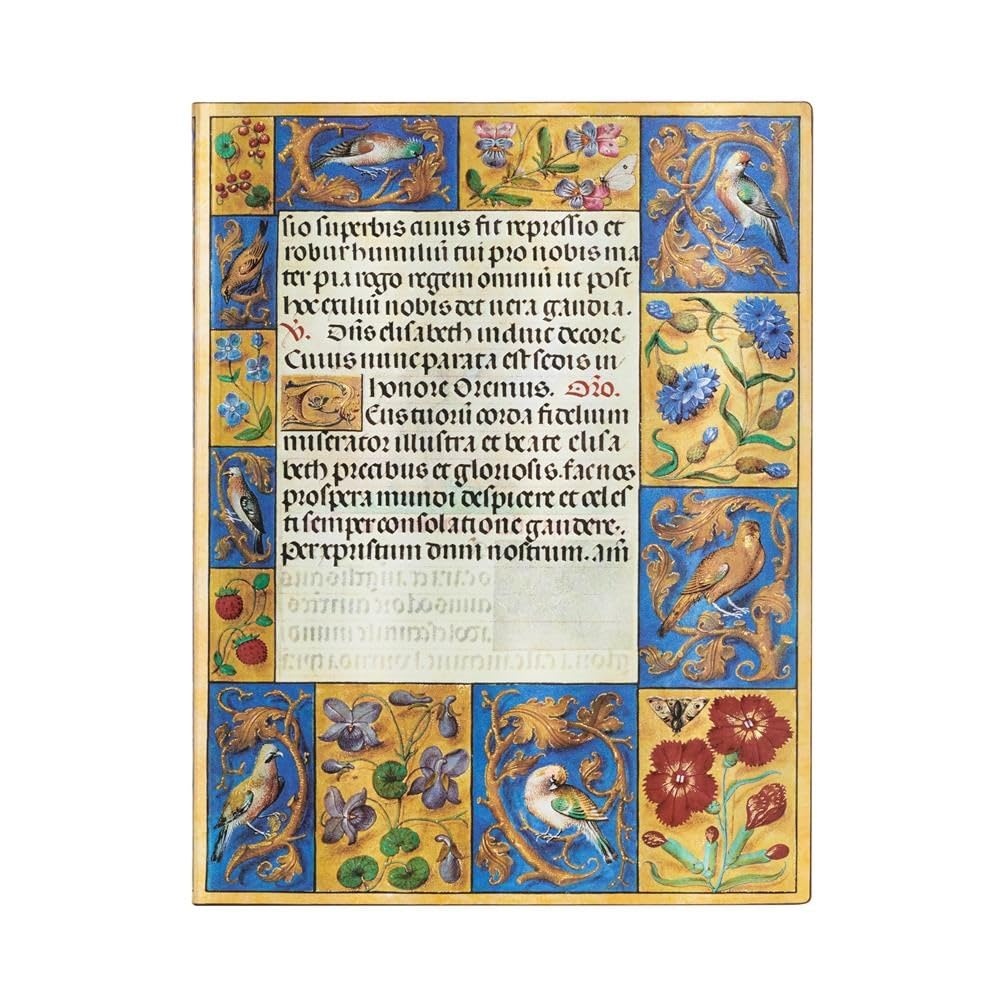 sio superbis cuius fit repressio et
robur humiliū tui pro nobis ma
ter pia rogo regem omniū ut post
hoc exiliū nobis det uera gaudia.
V. Dūs elisabeth induit decore
Cuius nunc parata est sedis in
honore Oremus. Oŕo.
DEus tuorū corda fidelium
miserator illustra et beate elisa
beth precibus et gloriosis. fac nos
prospera mundi despicere et celes
ti semper consolatione gaudere.
Per xp̄istum dnm̄ nostrum. am̄